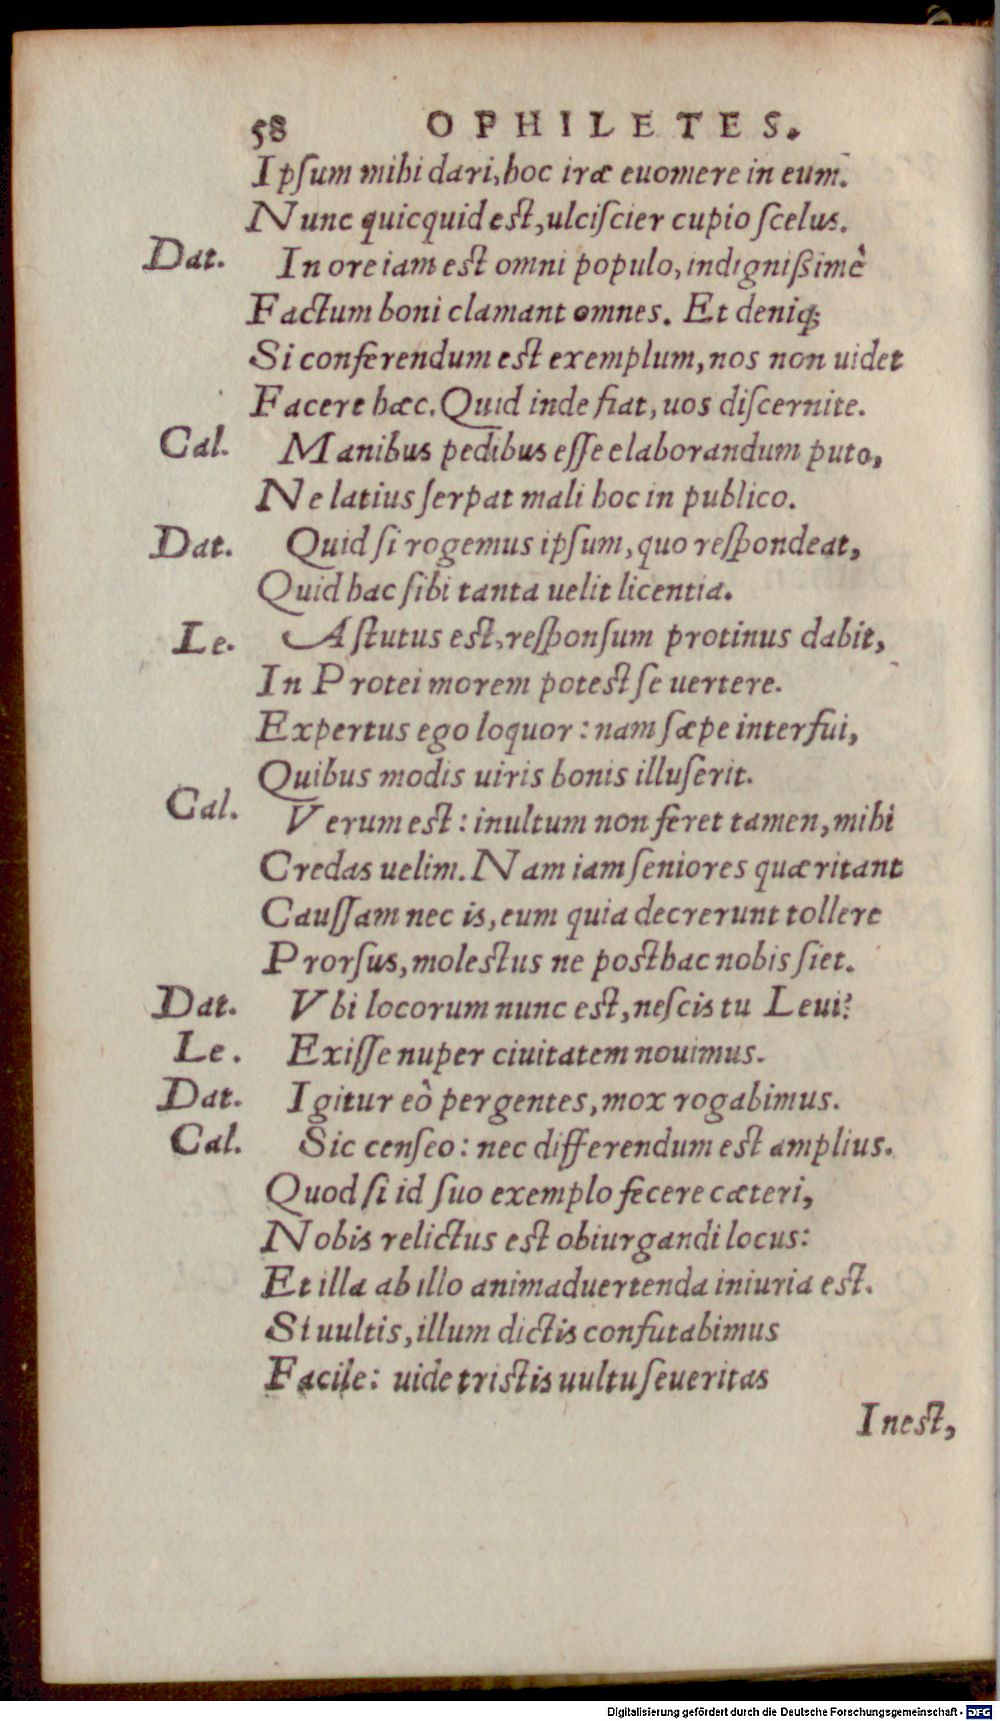 58 OPHILETES.
Ipſum mihi dari, hoc iræ euomere in eum.
Nunc quicquid est, ulciſcier cupio ſcelus.
Dat. In ore iam est omni populo, indignißimè
Factum boni clamant omnes. Et deniq;
Si conferendum est exemplum, nos non uidet
Facere hæc. Quid inde fiat, uos diſcernite.
Cal. Manibus pedibus eſſe elaborandum puto,
Ne latius ſerpat mali hoc in publico.
Dat. Quid ſi rogemus ipſum, quo reſpondeat,
Quid hac ſibi tanta uelit licentia.
Le. Aſtutus est, reſponſum protinus dabit,
In Protei morem potest ſe uertere.
Expertus ego loquor: nam ſæpe interfui,
Quibus modis uiris bonis illuſerit.
Cal. Verum est: inultum non feret tamen, mihi
Credas uelim. Nam iam ſeniores quæritant
Cauſſam nec is, eum quia decrerunt tollere
Prorſus, molestus ne posthac nobis ſiet.
Dat. Vbi locorum nunc est, neſcis tu Leui?
Le. Exiſſe nuper ciuitatem nouimus.
Dat. Igitur eò pergentes, mox rogabimus.
Cal. Sic cenſeo: nec differendum est amplius.
Quod ſi id ſuo exemplo fecere cæteri,
Nobis relictus est obiurgandi locus:
Et illa ab illo animaduertenda iniuria est.
Si uultis, illum dictis confutabimus
Facile: uide tristis uultu ſeueritas
Inest,
Digitalisierung gefördert durch die Deutsche Forschungsgemeinschaft - DFG